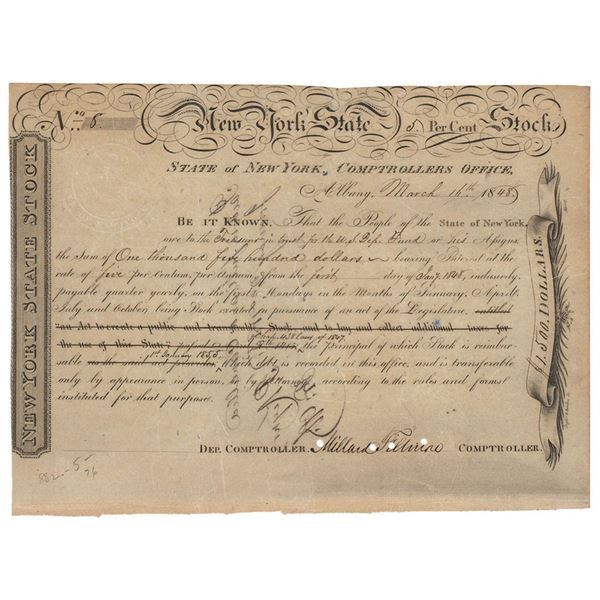 No. 8.
New York State 5 Per Cent Stock
NEW YORK STATE STOCK
STATE of NEW YORK, COMPTROLLERS OFFICE,
Albany, March 16th 1848
BE IT KNOWN, That the People of the State of New York,
owe to the Treasurer in trust for the U.S. Dep. Fund or his Assigns
the Sum of One thousand five hundred dollars bearing Interest at the
rate of five per Centum, per Annum, from the first day of Jany. 1848, inclusively,
payable quarter yearly, on the first Mondays in the Months of January, April,
July and October, being Stock created in pursuance of an act of the Legislature, entitled
an Act to create a public and transferable Stock, and to lay and collect additional taxes for
the use of this State,
of 1847
the Principal of which Stock is reimbur-
1st January 1856.
sable Which debt is recorded in this office, and is transferable
only by appearance in person, or by Attorney, according to the rules and forms
instituted for that purpose.
1,500. DOLLARS.
DEP. COMPTROLLER. Millard Fillmore COMPTROLLER.
882 - 5
76